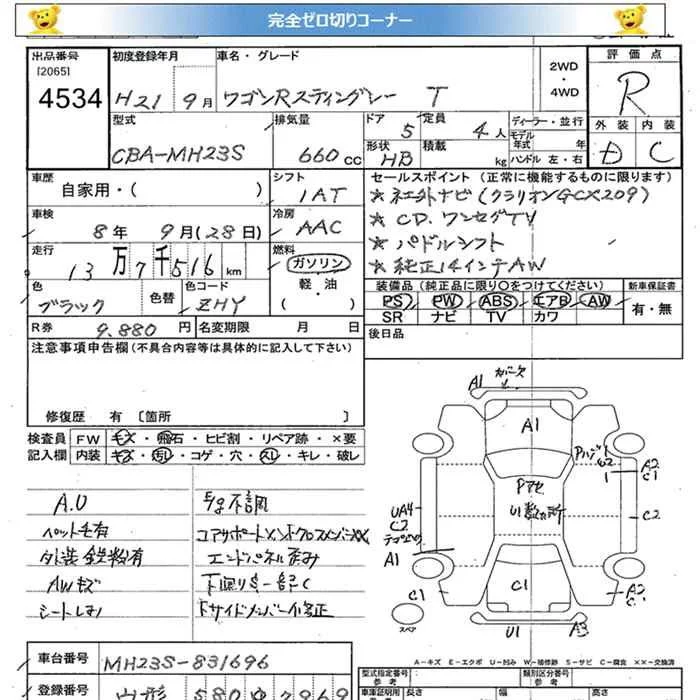 完全ゼロ切りコーナー
出品番号
[2065]
4534
初度登録年月
H21 9月
車名・グレード
ワゴンRスティングレー T
2WD
・
4WD
評価点
R
外装 内装
D C
型式
CBA-MH23S
排気量
660 cc
ドア 5
定員 4人
形状 HB
積載 kg
ディーラー・並行
モデル年式 年
ハンドル 左・右
車歴
自家用・( )
シフト
IAT
車検
8年 9月(28日)
冷房
AAC
走行
13万7千516 km
燃料
ガソリン
軽・油
( )
色
ブラック
色替
色コード
ZHY
R券 9.880円
名変期限 月 日
セールスポイント (正常に機能するものに限ります)
★社外ナビ(クラリオンGCX209)
★CD、ワンセグTV
★パドルシフト
★純正14インチAW
装備品(純正品に限り○をつけてください)
PS PW ABS エアB AW
SR ナビ TV カワ
新車保証書
有・無
後日品
注意事項申告欄(不具合内容等は具体的に記入して下さい)
修復歴 有 〔箇所 〕
検査員記入欄
FW キズ・飛石・ヒビ割・リペア跡・×要
内装 キズ・汚レ・コゲ・穴・スレ・キレ・破レ
A.U
ペット毛有
外装鉄粉有
AWキズ
エンドパネル歪み
A1
A1
Pハゲ
A2
C1
Pアセ
U1数カ所
UA4
C2
C2
A1
C1
C1
A2
U1
A3
スペア
A−キズ E−エクボ U−凹み W−補修跡 S−サビ C−腐食 ××−交換済
車台番号
MH23S-831696
登録番号
山形 580
型式指定番号
参考
類別区分番号
参考
車庫証明用
長さ
幅
高さ